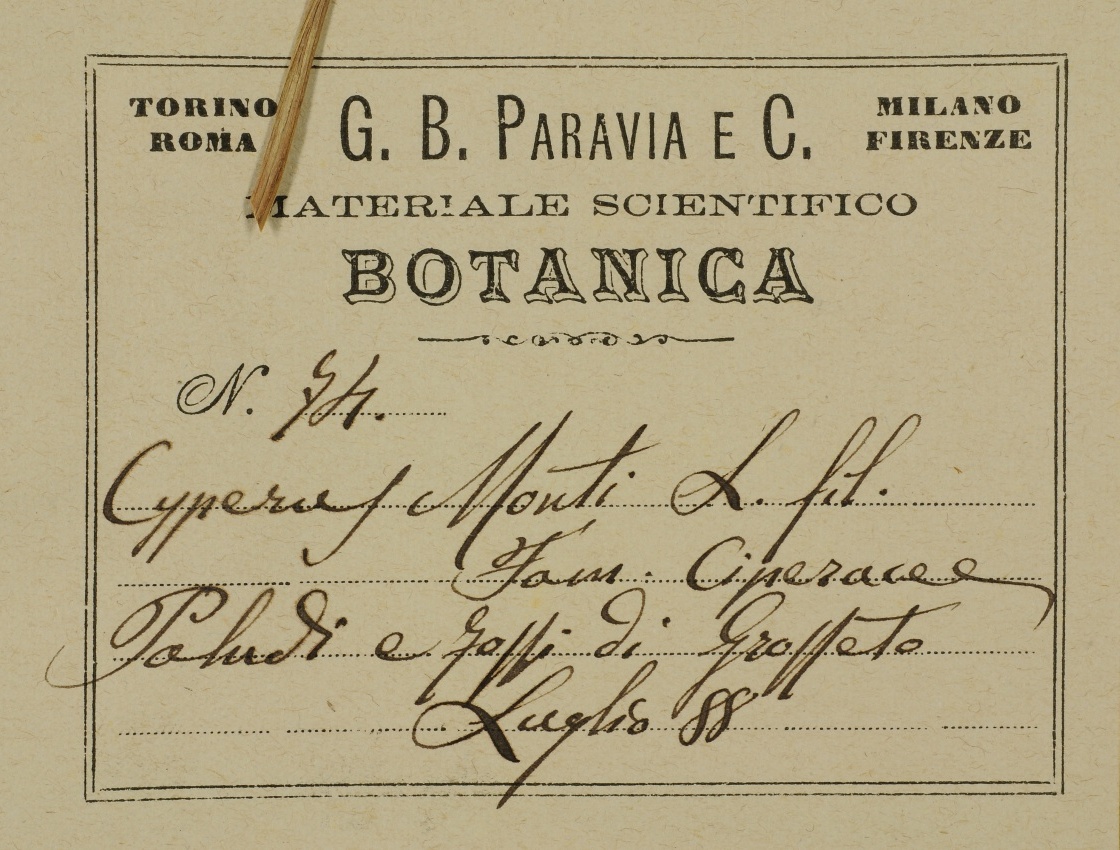 TORINO
ROMA
G. B. PARAVIA E C.
MILANO
FIRENZE
MATERIALE SCIENTIFICO
BOTANICA
N. 74.
Cyperus Monti L. fil.
Fam. Ciperacee
Paludi e fossi di Grosseto
Luglio 88